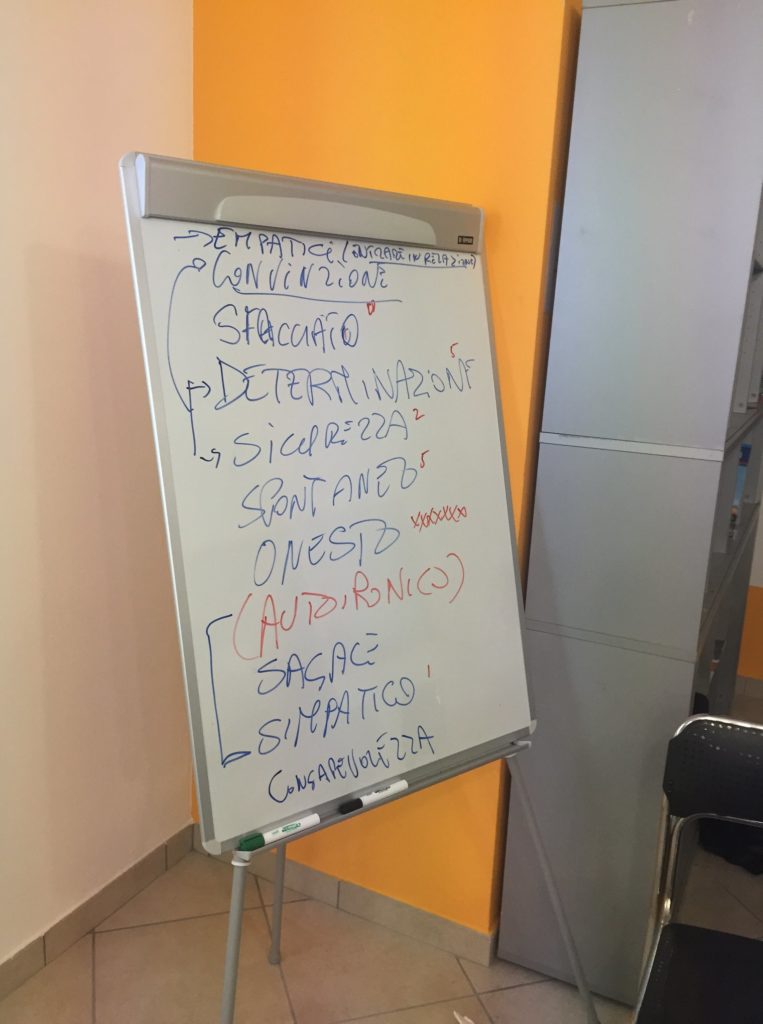 → EMPATICI (ENTRARE IN RELAZIONE)
CONVINZIONE
SFACCIATO 0
DETERMINAZIONE 5
SICUREZZA 2
SPONTANEO 5
ONESTO xxxxxxx
(AUTOIRONICO)
SAGACE
SIMPATICO 1
CONSAPEVOLEZZA